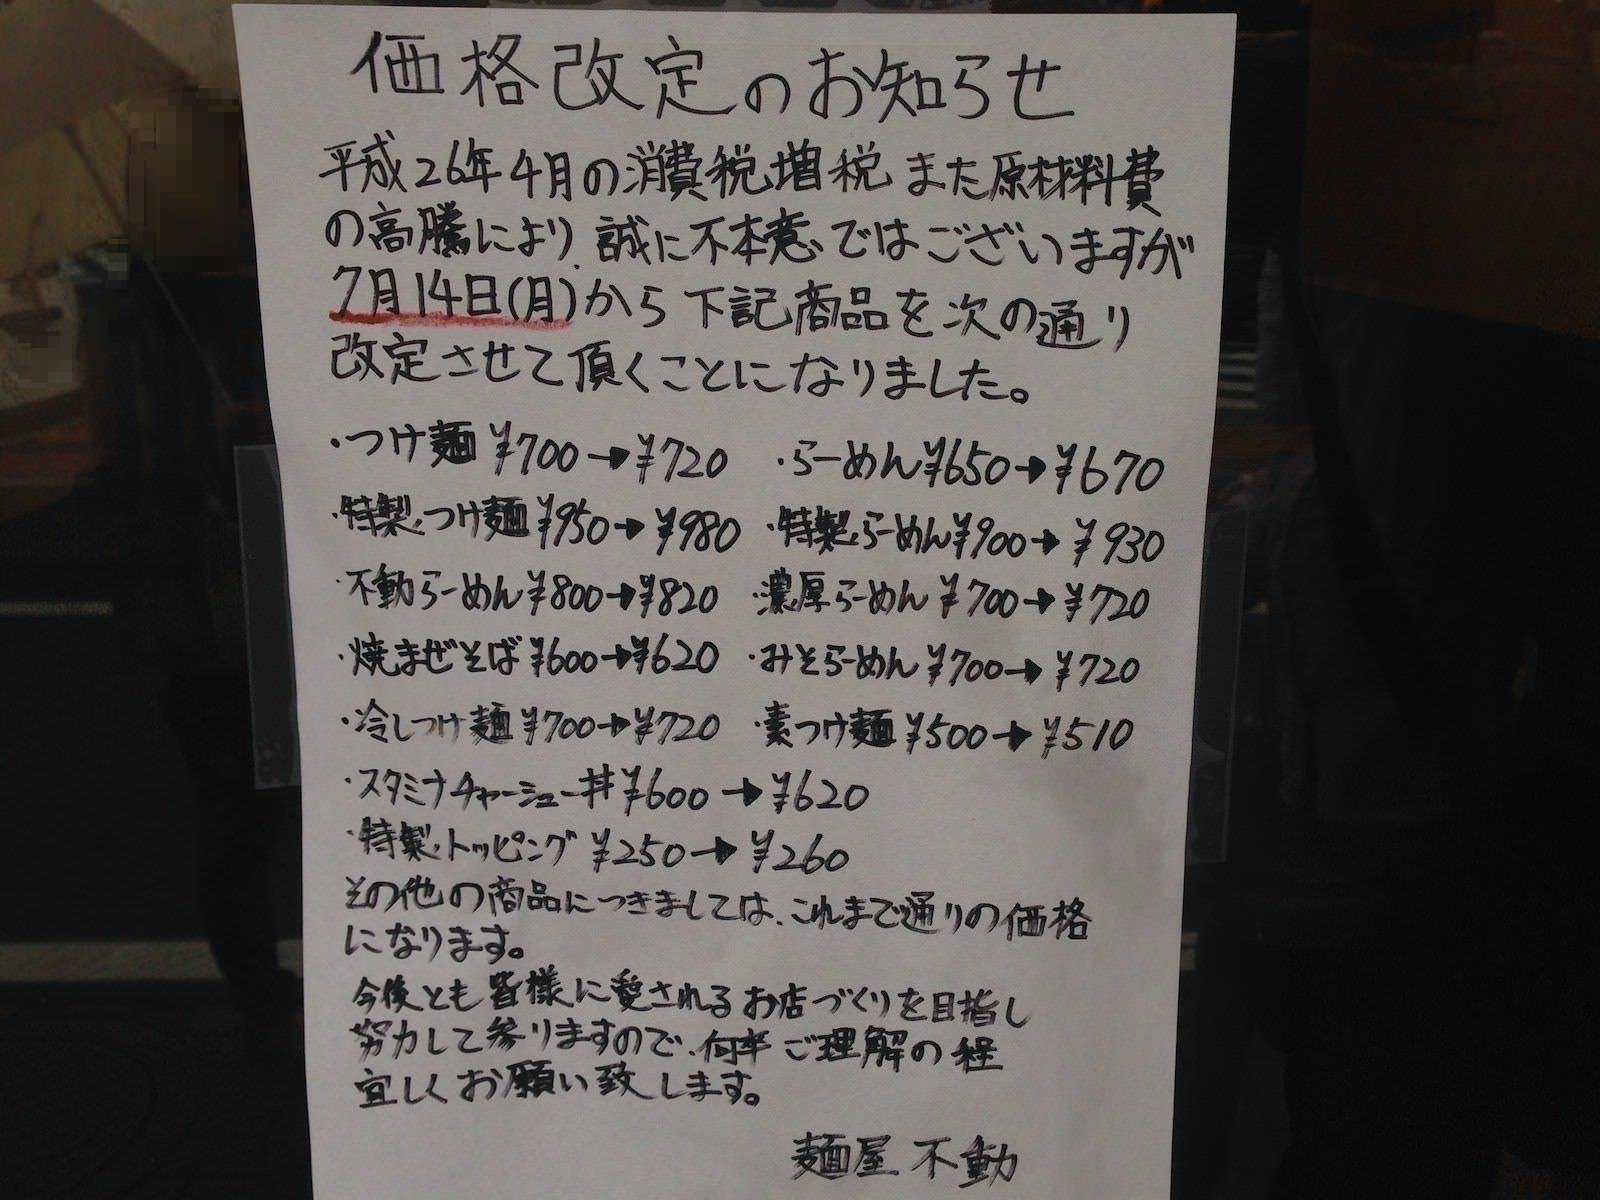 価格改定のお知らせ
平成26年4月の消費税増税また原材料費
の高騰により、誠に不本意ではございますが
7月14日(月)から下記商品を次の通り
改定させて頂くことになりました。
・つけ麺 ¥700→¥720 ・らーめん¥650→¥670
・特製つけ麺¥950→¥980 ・特製らーめん¥900→¥930
・不動らーめん¥800→¥820 ・濃厚らーめん¥700→¥720
・焼まぜそば¥600→¥620 ・みそらーめん¥700→¥720
・冷しつけ麺¥700→¥720 ・素つけ麺¥500→¥510
・スタミナチャーシュー丼¥600→¥620
・特製トッピング ¥250→¥260
その他の商品につきましては、これまで通りの価格
になります。
今後とも皆様に愛されるお店づくりを目指し
努力して参りますので、何卒ご理解の程
宜しくお願い致します。
麺屋 不動